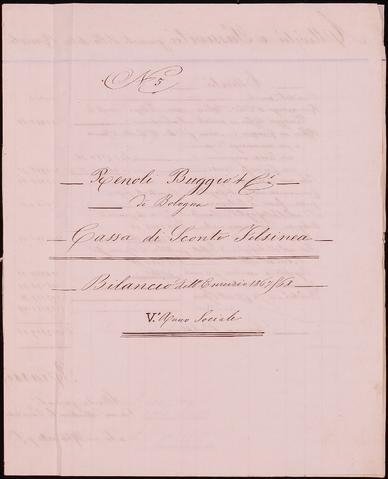 N. 5
Renoli Buggio & C.i
di Bologna
Cassa di Sconto Felsinea
Bilancio dell'Esercizio 1867/68
V.° Anno Sociale